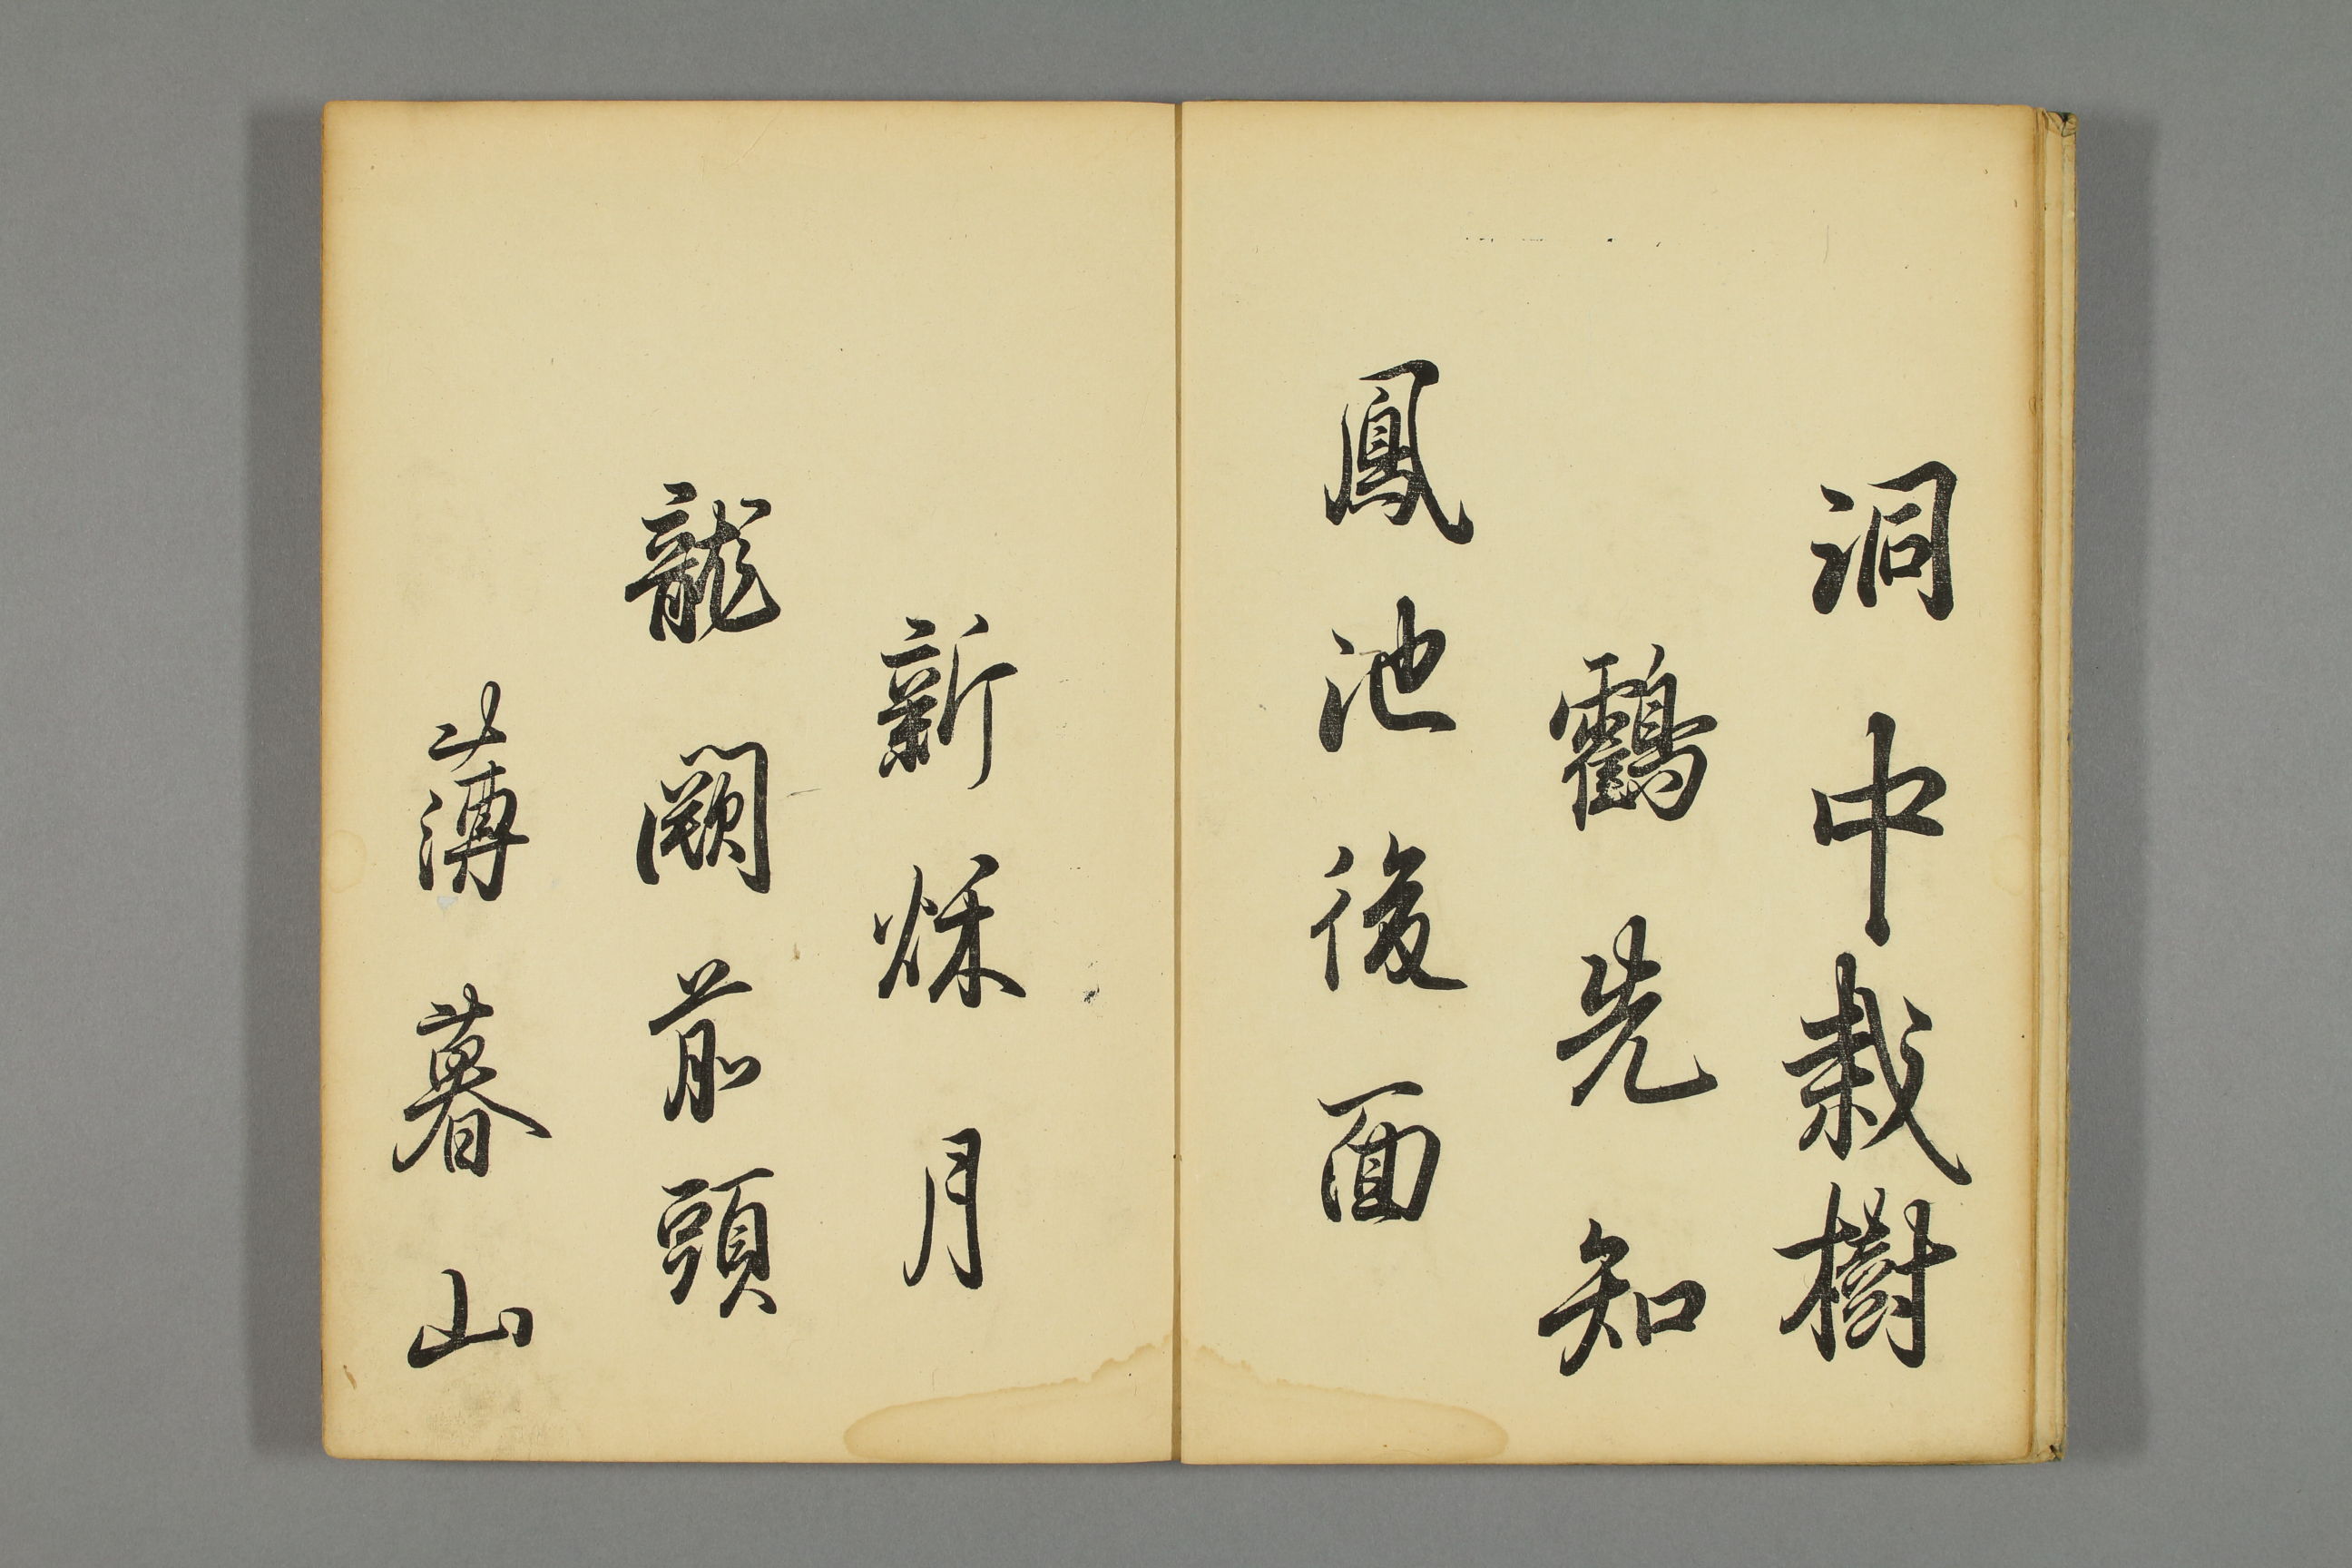 洞中栽樹
鸖先知
鳳池後面
新烁月
龍闕前頭
薄暮山